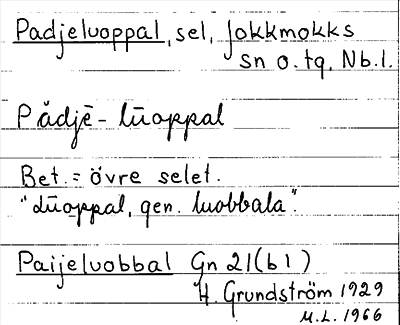 Padjeluoppal, sel, Jokkmokks
sn o. tg, Nb.l.
Pådjē-lūoppal
Bet. = övre selet.
"Lūoppal, gen. luobbala".
Paijeluobbal Gn 21(b1)
H. Grundström 1929
M.L. 1966